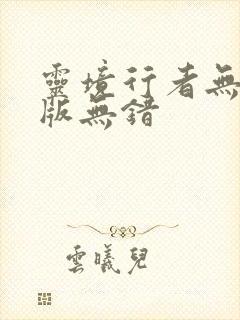 靈境行者無
版無錯
雲曦兒